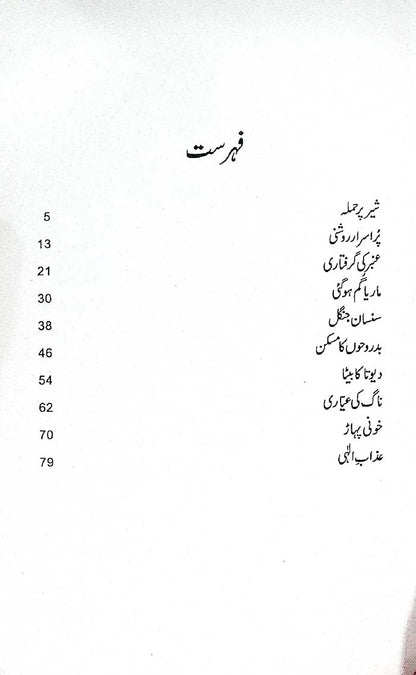 فہرست
شیر پر حملہ 5
پُراسرار روشنی 13
عنبر کی گرفتاری 21
ماریا گم ہو گئی 30
سنسان جنگل 38
بدروحوں کا مسکن 46
دیوتا کا بیٹا 54
ناگ کی عیّاری 62
خونی پہاڑ 70
عذابِ الٰہی 79